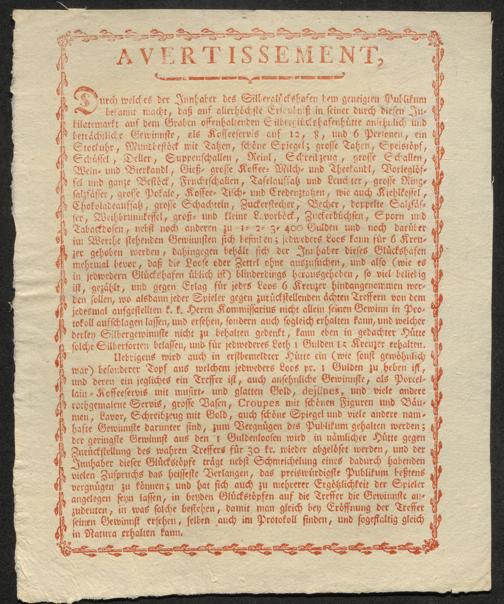 AVERTISSEMENT,
Durch welches der Innhaber des Silberglückshafen dem geneigten Publikum
bekannt macht, daß auf allerhöchste Erlaubniß in seiner durch diesen Ju-
bilatemarkt auf dem Graben offenhaltenden Silberglückshafenhütte ansehnlich und
beträchtliche Gewinnste, als Koffeeservis auf 12, 8, und 6 Personen, ein
Stockuhr, Mundbestöck mit Tatzen, schöne Spiegel; grosse Tatzen, Speistöpf,
Schüssel, Deller, Suppenschallen, Reinl, Schreibzeug, grosse Schallen,
Wein- und Bierkandl, Gieß- grosse Koffee- Milch- und Theekandl, Vorleglöf-
fel und ganze Bestöck, Fruchtschallen, Tafelaufsatz und Leuchter, grosse Ring-
salzfässer, grosse Pokale, Koffee- Tisch- und Credenztatzen, wie auch Kehlkessel,
Chokoladeaufsatz, grosse Schachteln, Zuckerstecher, Becher, doppelte Salzfäs-
ser, Weihbrunnkessel, groß- und kleine Lavorböck, Zuckerbüchsen, Sporn und
Tabackdosen, nebst noch anderen zu 1- 2- 3- 400 Gulden und noch darüber
im Werthe stehenden Gewinnsten sich befinden; jedweders Loos kann für 6 Kreu-
zer gehoben werden, dahingegen behält sich der Innhaber dieses Glückshafen
mehrmal bevor, daß die Loose oder Zetel ohne auszusuchen, und also (wie es
in jedwedern Glückshafen üblich ist) blinderdings herausgeheben, so viel beliebig
ist, gezählt, und gegen Erlag für jedes Loos 6 Kreuzer hindangenommen wer-
den sollen, wo alsdann jeder Spieler gegen zurückstellenden ächten Treffern von dem
jedesmal aufgestellten k. k. Herrn Kommissarius nicht allein seinen Gewinn in Pro-
tokoll aufschlagen lassen, und ersehen, sondern auch sogleich erhalten kann, und welcher
derley Silbergewinnste nicht zu behalten gedenkt, kann eben in gedachter Hütte
solche Silbersorten belassen, und für jedweders Loth 1 Gulden 12 Kreuzer erhalten.
Uebrigens wird auch in erstbemeldter Hütte ein (wie sonst gewöhnlich
war) besonderer Topf aus welchem jedweders Loos pr. 1 Gulden zu heben ist,
und deren ein jegliches ein Treffer ist, auch ansehnliche Gewinnste, als Porcel-
lain-Koffeeservis mit gemusirt- und glatten Gold, dejunes, und viele andere
rothgemalene Servis, grosse Vasen, Croupes mit schönen Figuren und Bäu-
men, Lavor, Schreibzeug mit Gold, auch schöne Spiegel und viele andere nam-
hafte Gewinnste darunter sind, zum Vergnügen des Publikum gehalten werden;
der geringste Gewinnst aus den 1 Guldenloosen wird in nämlicher Hütte gegen
Zurückstellung des wahren Treffers für 30 kr. wieder abgelöset werden, und der
Innhaber dieser Glückstöpfe trägt nebst Schmeichelung eines dadurch habenden
vielen Zuspruchs das heisseste Verlangen, das preiswürdigste Publikum bestens
vergnügen zu können; und hat sich auch zu mehrerer Ergötzlichkeit der Spieler
angelegen seyn lassen, in beyden Glückstöpfen auf die Treffer die Gewinnste an-
zudeuten, in was solche bestehen, damit man gleich bey Eröffnung der Treffer
seinen Gewinnst ersehen, selben auch im Protokoll finden, und sogestaltig gleich
in Natura erhalten kann.